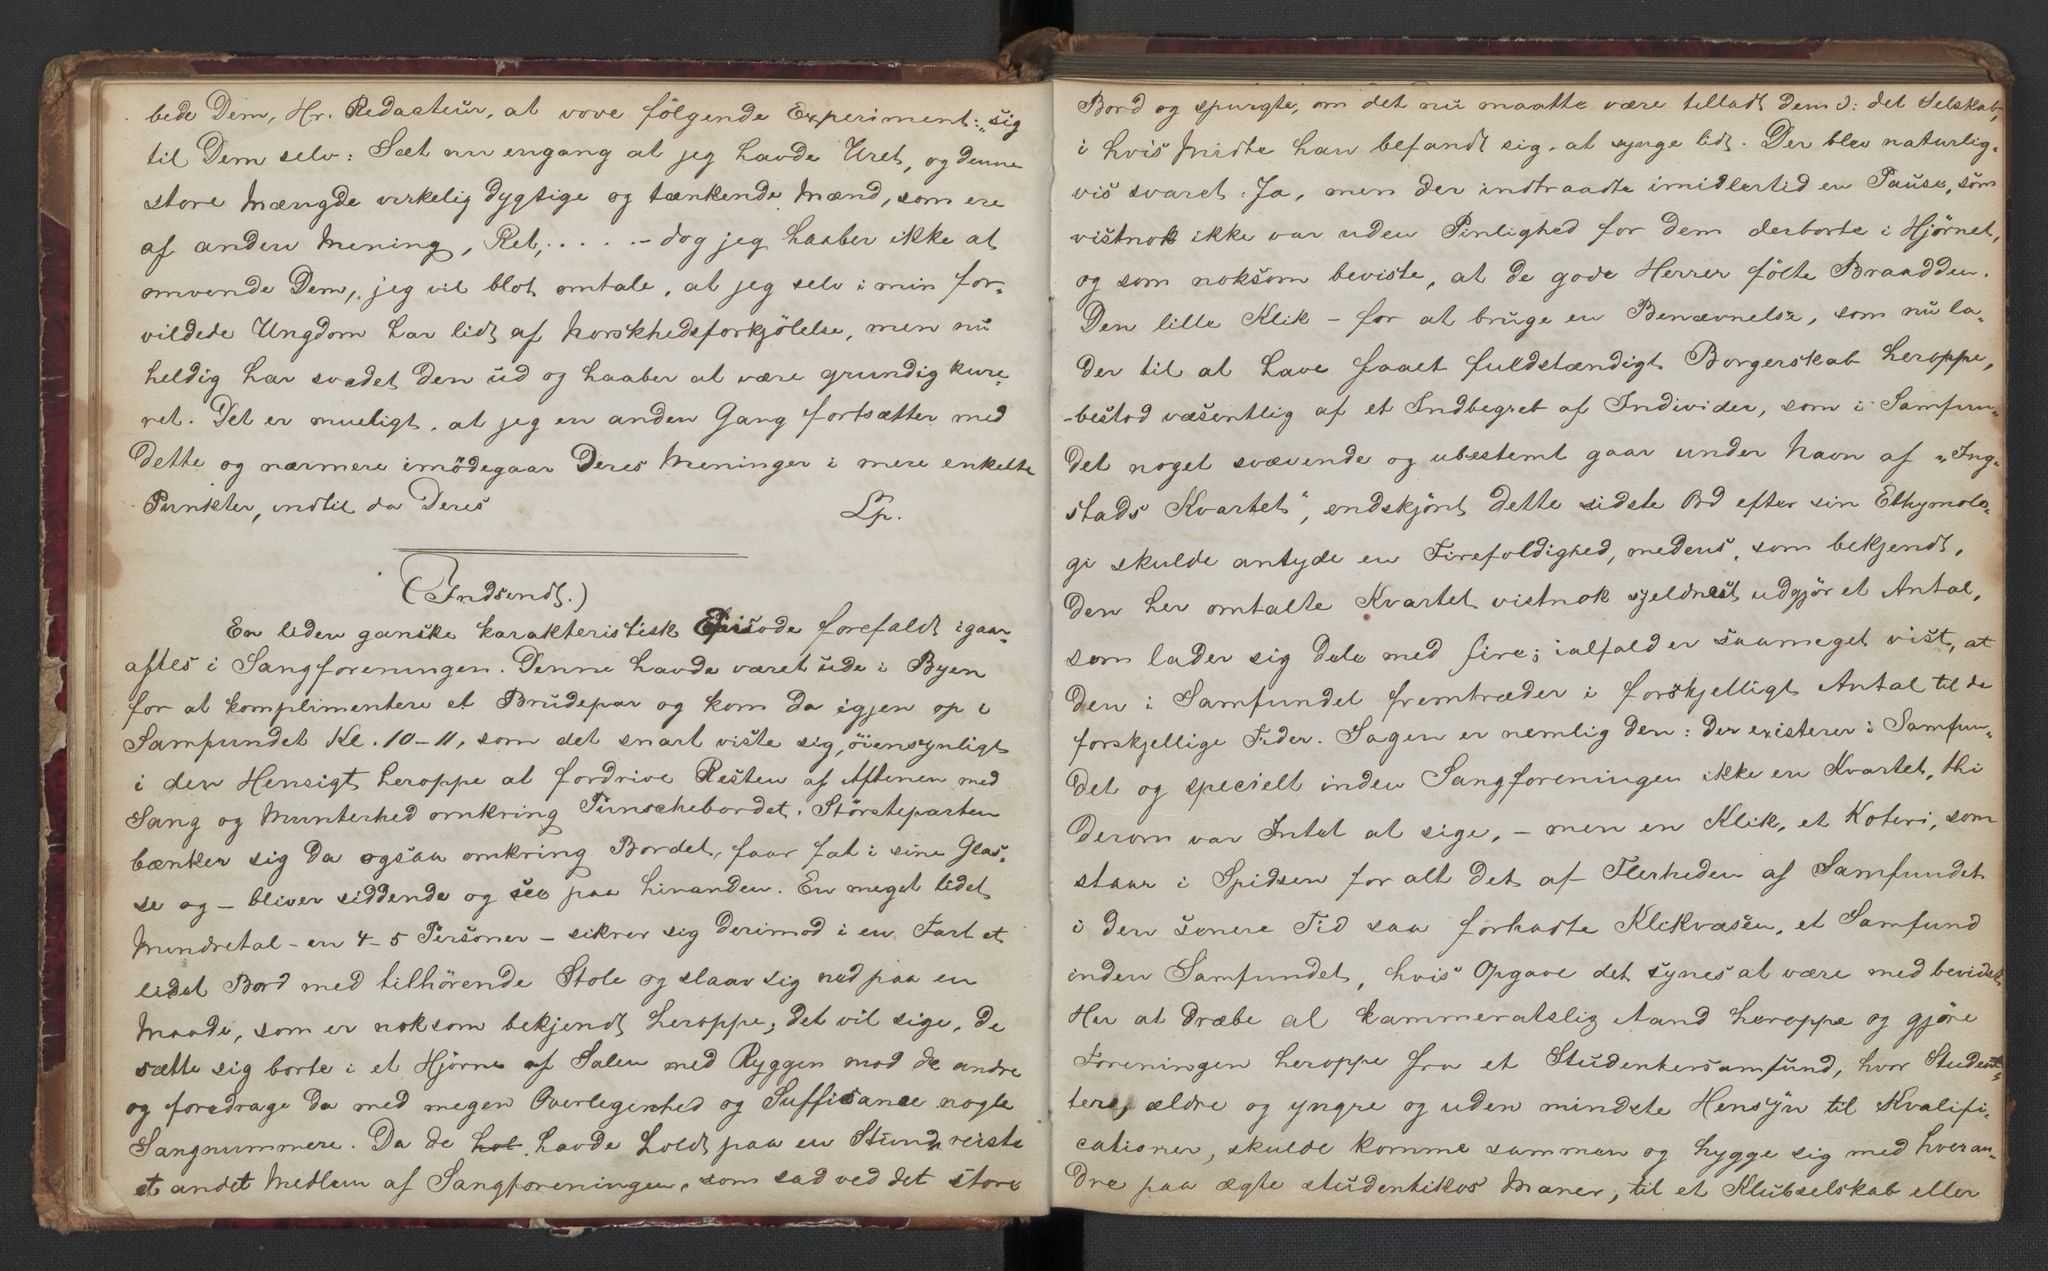 bede Dem, Hr. Redacteur, at vove følgende Experiment: „sig
til Dem selv: Sæt nu engang at jeg havde Uret, og denne
store Mængde virkelig dygtige og tænkende Mænd, som ere
af anden Mening, Ret, . . . . – dog jeg haaber ikke at
omvende Dem, jeg vil blot omtale, at jeg selv i min for-
vildede Ungdom har lidt af Norskhedsforkjölelse, men nu
heldig har svedet den ud og haaber at være grundig kure-
ret. Det er mueligt, at jeg en anden Gang fortsætter med
dette og nærmere imödegaar Deres Meninger i mere enkelte
Punkter, indtil da Deres
Lp.
(Indsendt.)
En liden ganske karakteristisk Episode forefaldt igaar-
aftes i Sangforeningen. Denne havde været ude i Byen
for at komplimentere et Brudepar og kom da igjen op i
Samfundet Kl. 10–11, som det snart viste sig, öiensynligt
i den Hensigt heroppe at fordrive Resten af Aftenen med
Sang og Munterhed omkring Punschebordet. Störsteparten
bænker sig da ogsaa omkring Bordet, faar fat i sine Glas-
se og – bliver siddende og see paa hinanden. En meget lidet
Mindretal – en 4–5 Personer – sikrer sig derimod i en Fart et
lidet Bord med tilhörende Stole og slaar sig ned paa en
Maade, som er noksom bekjendt heroppe, det vil sige, de
sætte sig borte i et Hjörne af Salen med Ryggen mod de andre
og foredrage da med megen Overlegenhed og Suffisance nogle
Sangnummere. Da de hol havde holdt paa en Stund, reiste
et andet Medlem af Sangforeningen, som sad ved det store
Bord og spurgte, om det nu maatte være tilladt dem ɔ: det Selskab,
i hvis Midte han befandt sig, at synge lidt. Der blev naturlig-
vis svaret Ja, men der indtraadte imidlertid en Pause, som
vistnok ikke var uden Pinlighed for dem derborte i Hjørnet,
og som noksom beviste, at de gode Herrer fölte Braadden.
Den lille Klik – for at bruge en Benævnelse, som nu la-
der til at have faaet fuldstændigt Borgerskab heroppe,
– bestod væsentlig af et Indbegreb af Individer, som i Samfun-
det noget svævende og ubestemt gaar under Navn af „Ing-
stads Kvartet“, endskjönt dette sidste Ord efter sin Ethymolo-
gi skulde antyde en Firefoldighed, medens, som bekjendt,
den her omtalte Kvartet vistnok sjeldnest udgjör et Antal,
som lader sig dele med fire; ialfald er saameget vist, at
den i Samfundet fremtræder i forskjelligt Antal til de
forskjellige Tider. Sagen er nemlig den: der existerer i Samfun-
det og specielt inden Sangforeningen ikke en Kvartet, thi
derom var Intet at sige, – men en Klik, et Koteri, som
staar i Spidsen for alt det af Flerheden af Samfundet
i den senere Tid saa forhadte Klikvæsen, et Samfund
inden Samfundet, hvis Opgave det synes at være med bevidst
Her at dræbe al kammeratslig Aand heroppe og gjöre
Foreningen heroppe fra et Studentersamfund, hvor Studen-
tere, ældre og yngre og uden mindste Hensyn til Kvalifi-
cationer, skulde komme sammen og hygge sig med hveran-
dre paa ægte studentikos Maner, til et Klubselskab eller